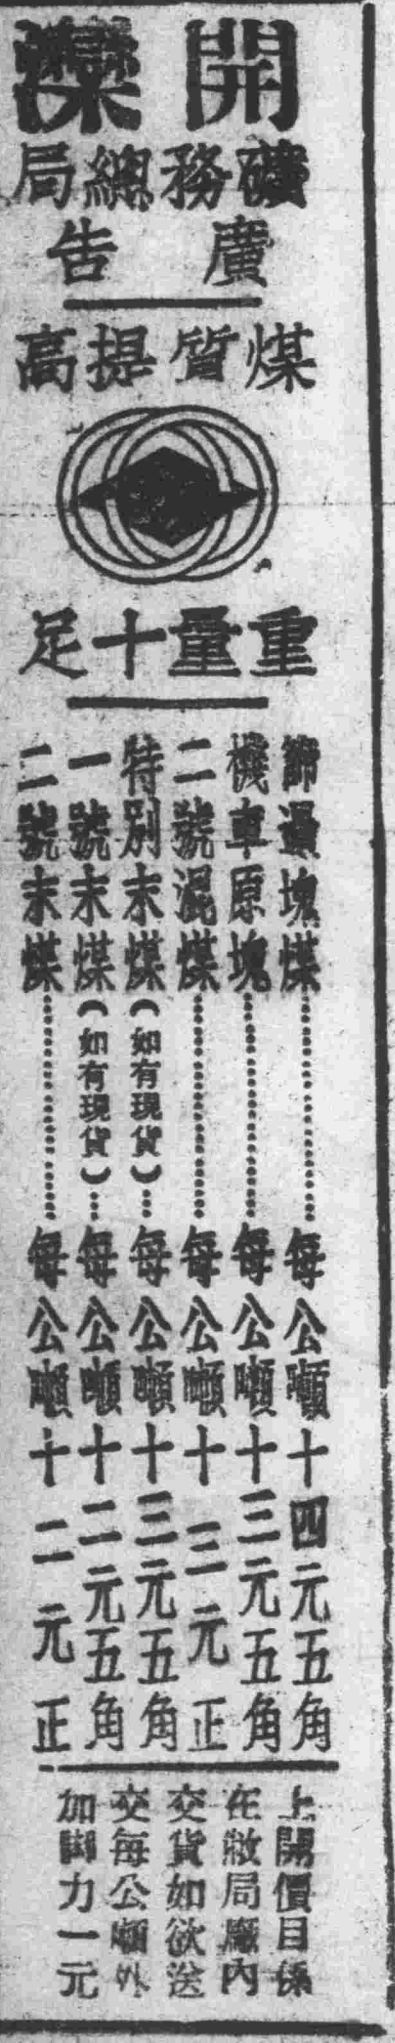 開灤
礦務總局
廣告
煤質提高
重量十足
篩過塊煤⋯⋯⋯⋯每公噸十四元五角
機車原塊⋯⋯⋯⋯每公噸十三元五角
二號混煤⋯⋯⋯⋯每公噸十三元正
特別末煤（如有現貨）⋯每公噸十三元五角
一號末煤（如有現貨）⋯每公噸十二元五角
二號末煤⋯⋯⋯⋯每公噸十二元正
上開價目係
在敝局廠內
交貨如欲送
交每公噸外
加脚力一元